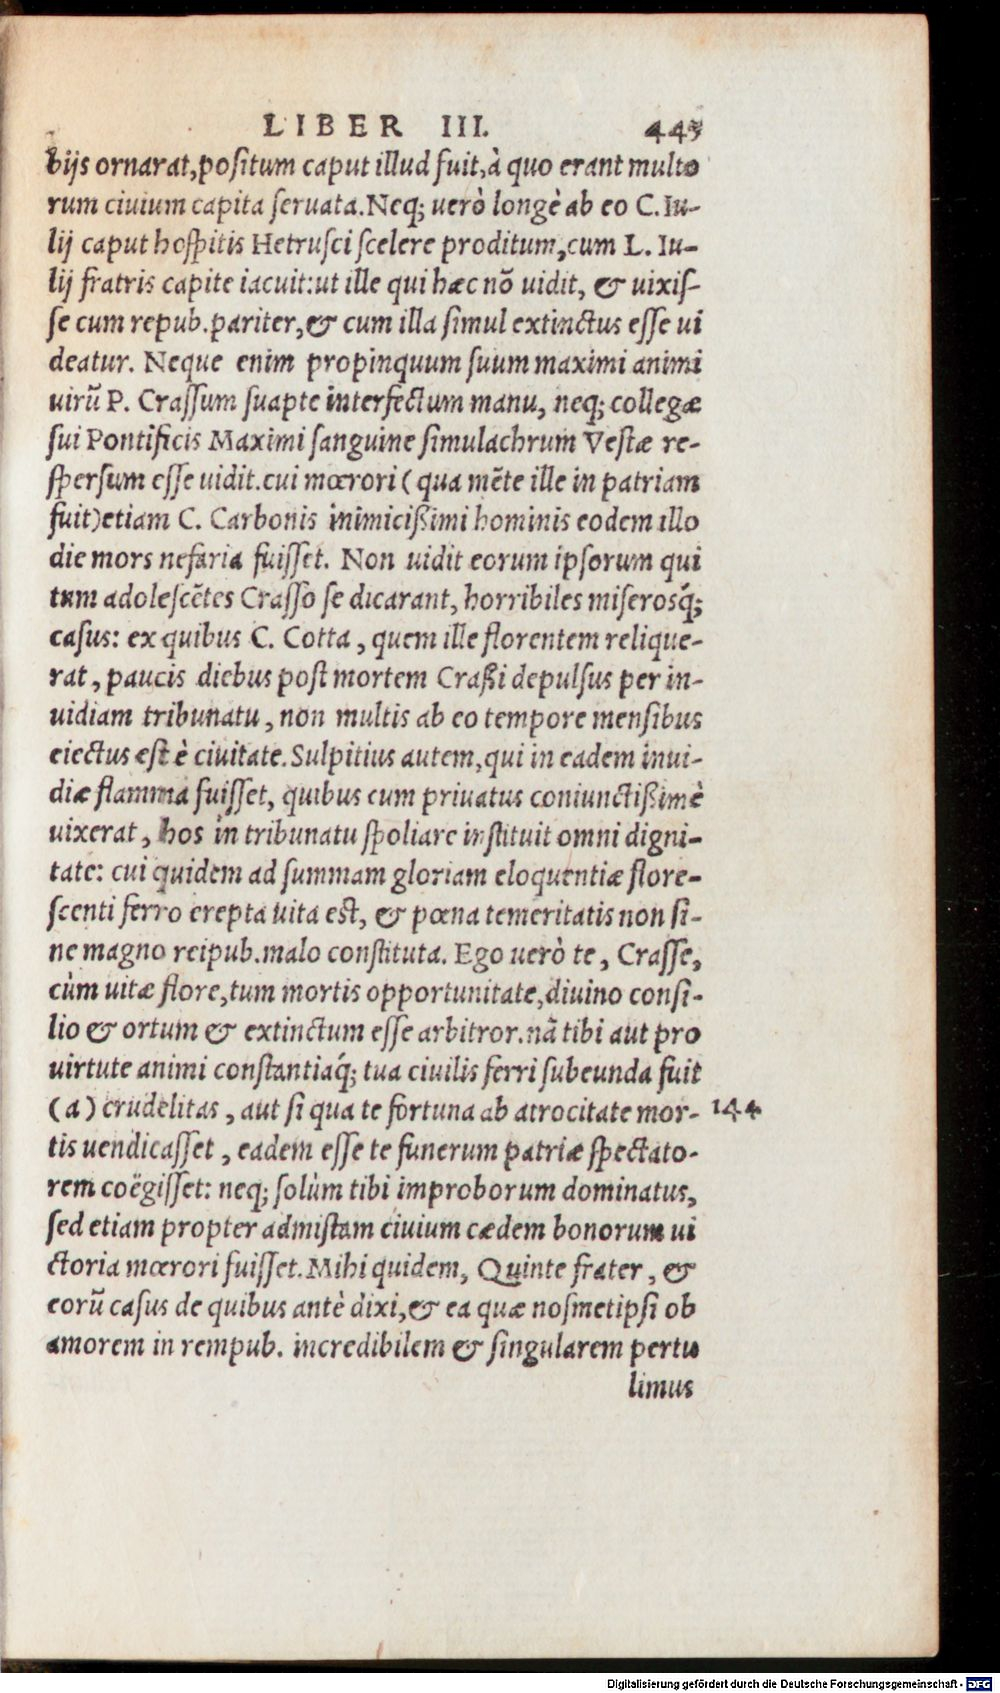 LIBER III. 443
bijs ornarat, positum caput illud fuit, à quo erant multo
rum ciuium capita seruata. Neq; uerò longè ab eo C. Iu-
lij caput hospitis Hetrusci scelere proditum, cum L. Iu-
lij fratris capite iacuit: ut ille qui hæc nõ uidit, & uixis-
se cum repub. pariter, & cum illa simul extinctus esse ui
deatur. Neque enim propinquum suum maximi animi
uirũ P. Crassum suapte interfectum manu, neq; collegæ
sui Pontificis Maximi sanguine simulachrum Vestæ re-
spersum esse uidit. cui mœrori ( qua mẽte ille in patriam
fuit) etiam C. Carbonis inimicißimi hominis eodem illo
die mors nefaria fuisset. Non uidit eorum ipsorum qui
tum adolescẽtes Crasso se dicarant, horribiles miserosq́;
casus: ex quibus C. Cotta, quem ille florentem relique-
rat, paucis diebus post mortem Craßi depulsus per in-
uidiam tribunatu, non multis ab eo tempore mensibus
eiectus est è ciuitate. Sulpitius autem, qui in eadem inui-
diæ flamma fuisset, quibus cum priuatus coniunctißimè
uixerat, hos in tribunatu spoliare instituit omni digni-
tate: cui quidem ad summam gloriam eloquentiæ flore-
scenti ferro erepta uita est, & pœna temeritatis non si-
ne magno reipub. malo constituta. Ego uerò te, Crasse,
cùm uitæ flore, tum mortis opportunitate, diuino consi-
lio & ortum & extinctum esse arbitror. nã tibi aut pro
uirtute animi constantiaq́; tua ciuilis ferri subeunda fuit
(a) crudelitas, aut si qua te fortuna ab atrocitate mor- 144
tis uendicasset, eadem esse te funerum patriæ spectato-
rem coëgisset: neq; solùm tibi improborum dominatus,
sed etiam propter admistam ciuium cædem bonorum ui
ctoria mœrori fuisset. Mihi quidem, Quinte frater, &
eorũ casus de quibus antè dixi, & ea quæ nosmetipsi ob
amorem in rempub. incredibilem & singularem pertu
limus
Digitalisierung gefördert durch die Deutsche Forschungsgemeinschaft - DFG